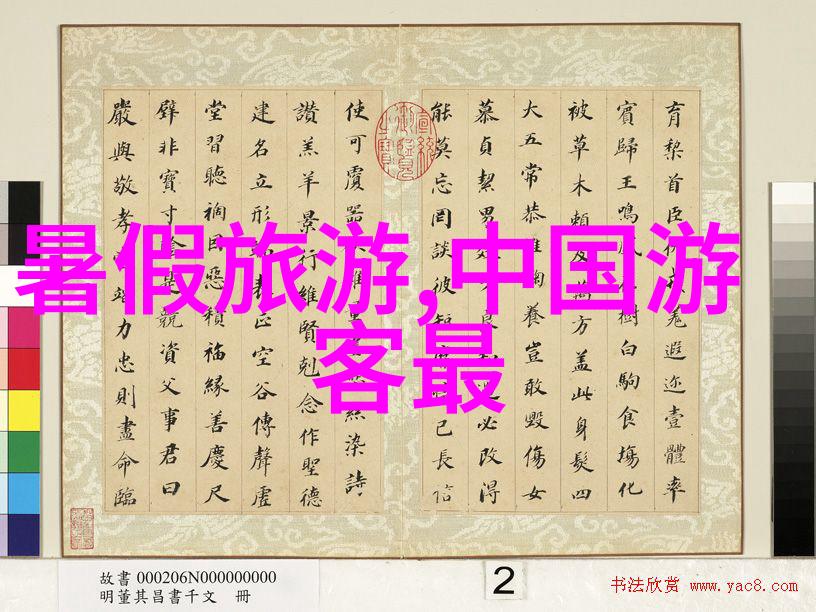 暑假旅游,中国游
客最
育黎首臣伏戎羌遐迩壹體率
賓歸王鳴鳳在樹白駒食場化
被草木賴及萬方蓋此身髮四
大五常恭惟鞠養豈敢毀傷女
慕貞絜男效才良知過必改得
能莫忘罔談彼短靡恃己長信
使可覆器欲難量墨悲絲染詩
讚羔羊景行維賢剋念作聖德
建名立形端表正空谷傳聲虛
堂習聽禍因惡積福緣善慶尺
璧非寶寸陰是競資父事君曰
嚴與敬孝當竭力忠則盡命臨
故書 000206N000000000
明董其昌書千文 冊
2
书法欣赏 www.yac8.com